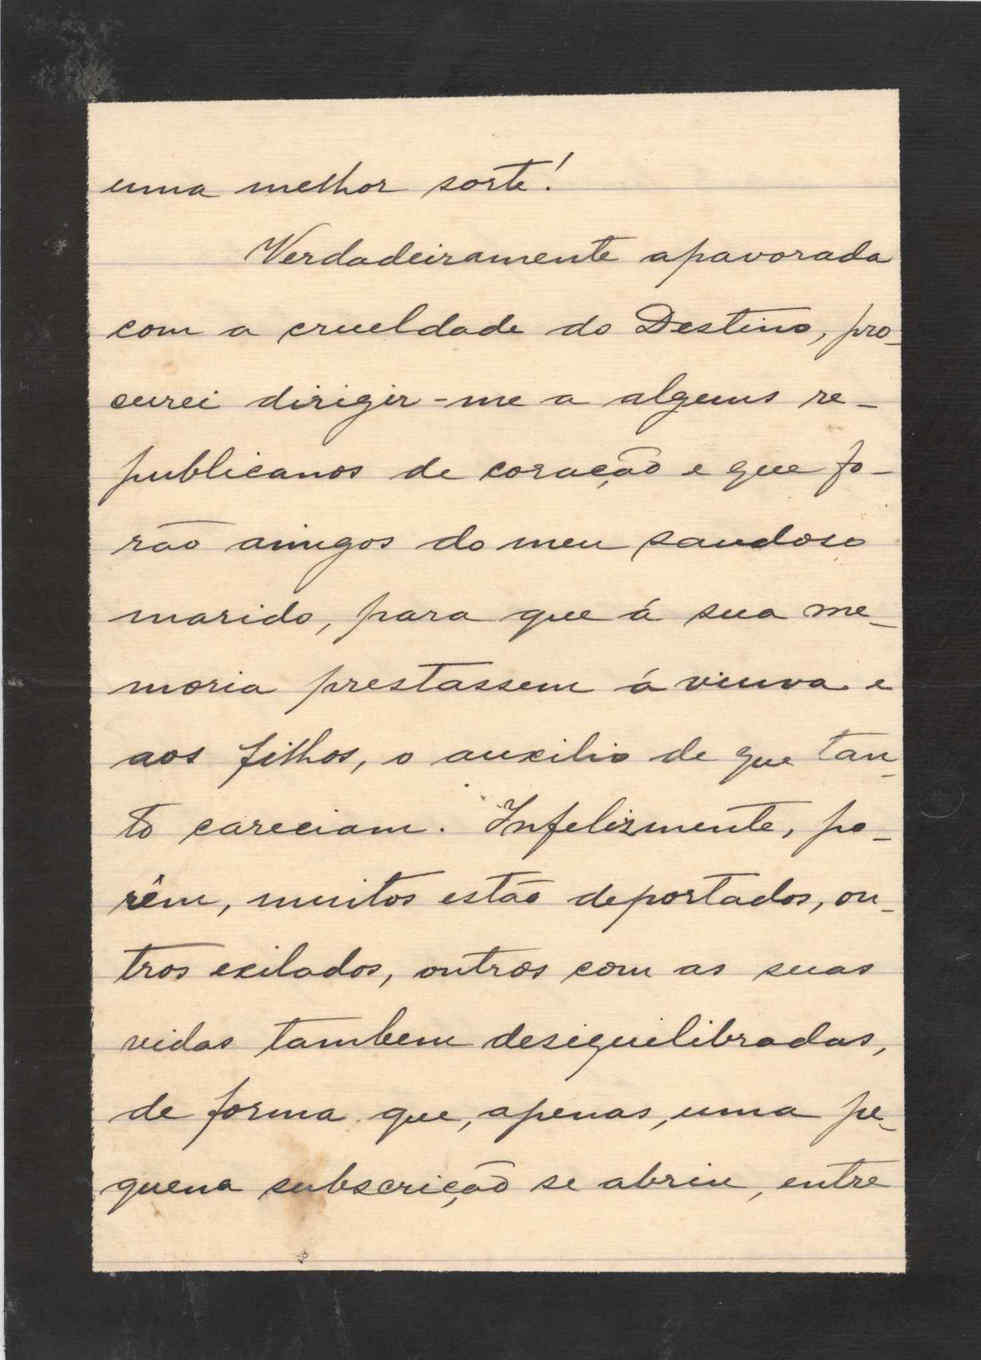 uma melhor sorte!
Verdadeiramente apavorada
com a crueldade do Destino, pro-
curei dirigir-me a alguns re-
publicanos de coração e que fo-
rão amigos do meu saudoso
marido, para que á sua me-
moria prestassem á viuva e
aos filhos, o auxilio de que tan-
to careciam. Infelizmente, po-
rêm, muitos estão deportados, ou-
tros exilados, outros com as suas
vidas tambem desiquilibradas,
de forma que, apenas, uma pe-
quena subscrição se abriu, entre